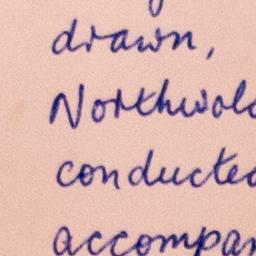 drawn,
Northwold
conducted
accompan